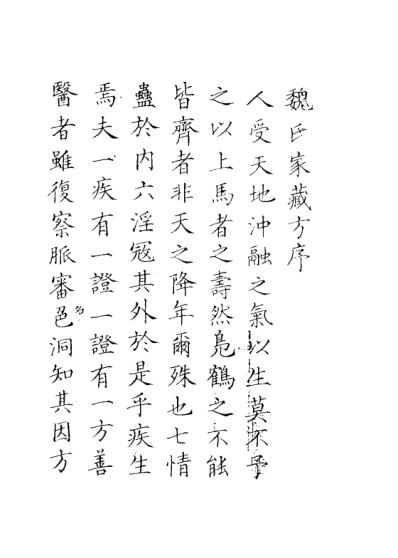 魏氏家藏方序
人受天地沖融之氣以生莫不予
之以上馬者之壽然鳧鶴之不能
皆齊者非天之降年爾殊也七情
蠱於内六淫冦其外於是乎疾生
焉夫一疾有一證一證有一方善
醫者雖復察脈審色洞知其因方